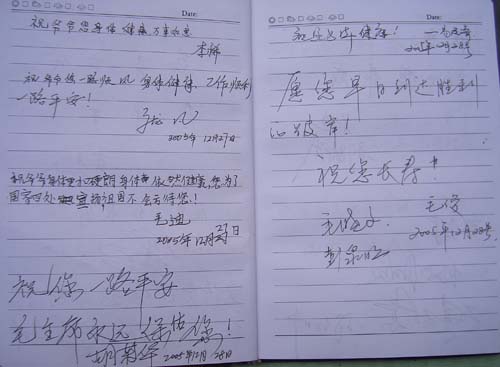 Date:
祝爷爷您身体健康 万事如意
李祥
祝爷爷您一路顺风 身体健康 工作顺利
一路平安！
2005年12月27日
祝爷爷身体 身体 依然健康，您为了
国家四处 宣扬祖国不会亏待您！
毛迪
2005年12月27日
祝您一路平安
毛主席永远保佑您！
胡菊华 2005年12月28日
Date:
2005年12月28号
愿您早日到达胜利
的彼岸！
祝您长寿！
毛俊
2005年12月28号